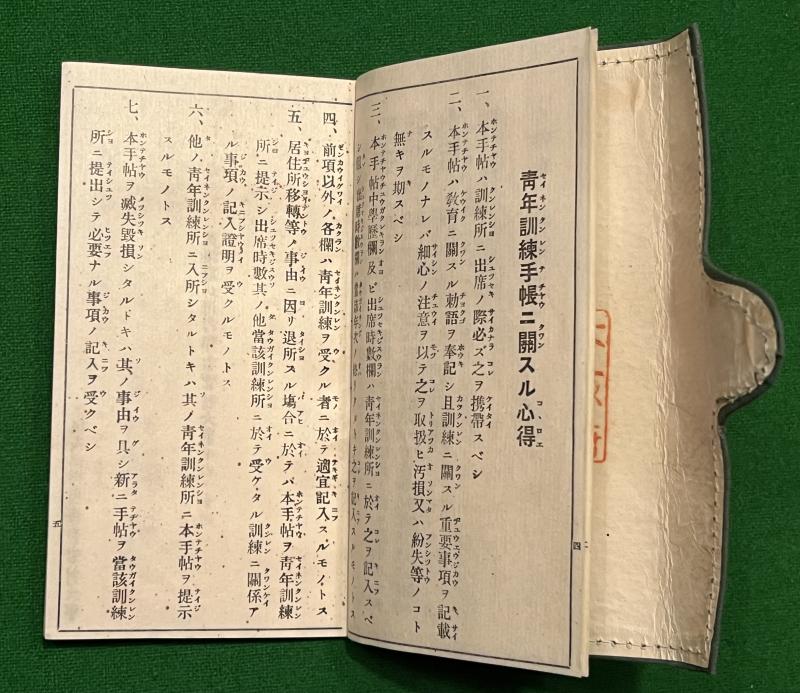 青年訓練手帳ニ關スル心得
一、本手帖ハ訓練所ニ出席ノ際必ズ之ヲ携帶スベシ
二、本手帖ハ敎育ニ關スル勅語ヲ奉記シ且訓練ニ關スル重要事項ヲ記載
スルモノナレバ細心ノ注意ヲ以テ之ヲ取扱ヒ汚損又ハ紛失等ノコト
無キヲ期スベシ
三、本手帖中學歷欄及ビ出席時數欄ハ靑年訓練所ニ於テ之ヲ記入スベ
シ
之ヲ記入スルモノトス
四、前項以外ノ各欄ハ靑年訓練ヲ受クル者ニ於テ適宜記入スルモノトス
五、居住所移轉等ノ事由ニ因リ退所スル場合ニ於テハ本手帖ヲ靑年訓練
所ニ提示シ出席時數其ノ他當該訓練所ニ於テ受ケタル訓練ニ關係ア
ル事項ノ記入證明ヲ受クルモノトス
六、他ノ靑年訓練所ニ入所シタルトキハ其ノ靑年訓練所ニ本手帖ヲ提示
スルモノトス
七、本手帖ヲ滅失毀損シタルドキハ其ノ事由ヲ具シ新ニ手帖ヲ當該訓練
所ニ提出シテ必要ナル事項ノ記入ヲ受クベシ
四
五